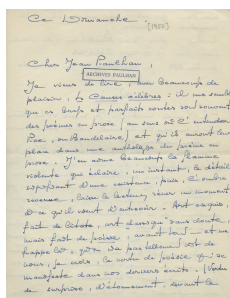 Ce Dimanche
[1950]
Cher Jean Paulhan,
ARCHIVES PAULHAN
Je viens de lire, avec beaucoup de
plaisir, les Causes célèbres : il me semble
que ces brefs et parfaits contes sont souvent
des poèmes en prose (au sens où l'entendait
, ou Baudelaire) et qu'ils auront leur
place dans une anthologie du poème en
prose. J'en aime beaucoup la flamme
violente qui éclaire, un instant, le détail
d'une existence, puis, l'ombre
revenue, laisse le lecteur rêver un moment
à ce qu'il vient d'entrevoir. Art
fait de litote, art classique sans doute,
mais fait de avant tout – et ne
pas tellement loin de
nous, je crois, la vertu de poésie qui se
manifeste dans vos derniers écrits. (Vertu
de surprise, d'étonnement, devant le